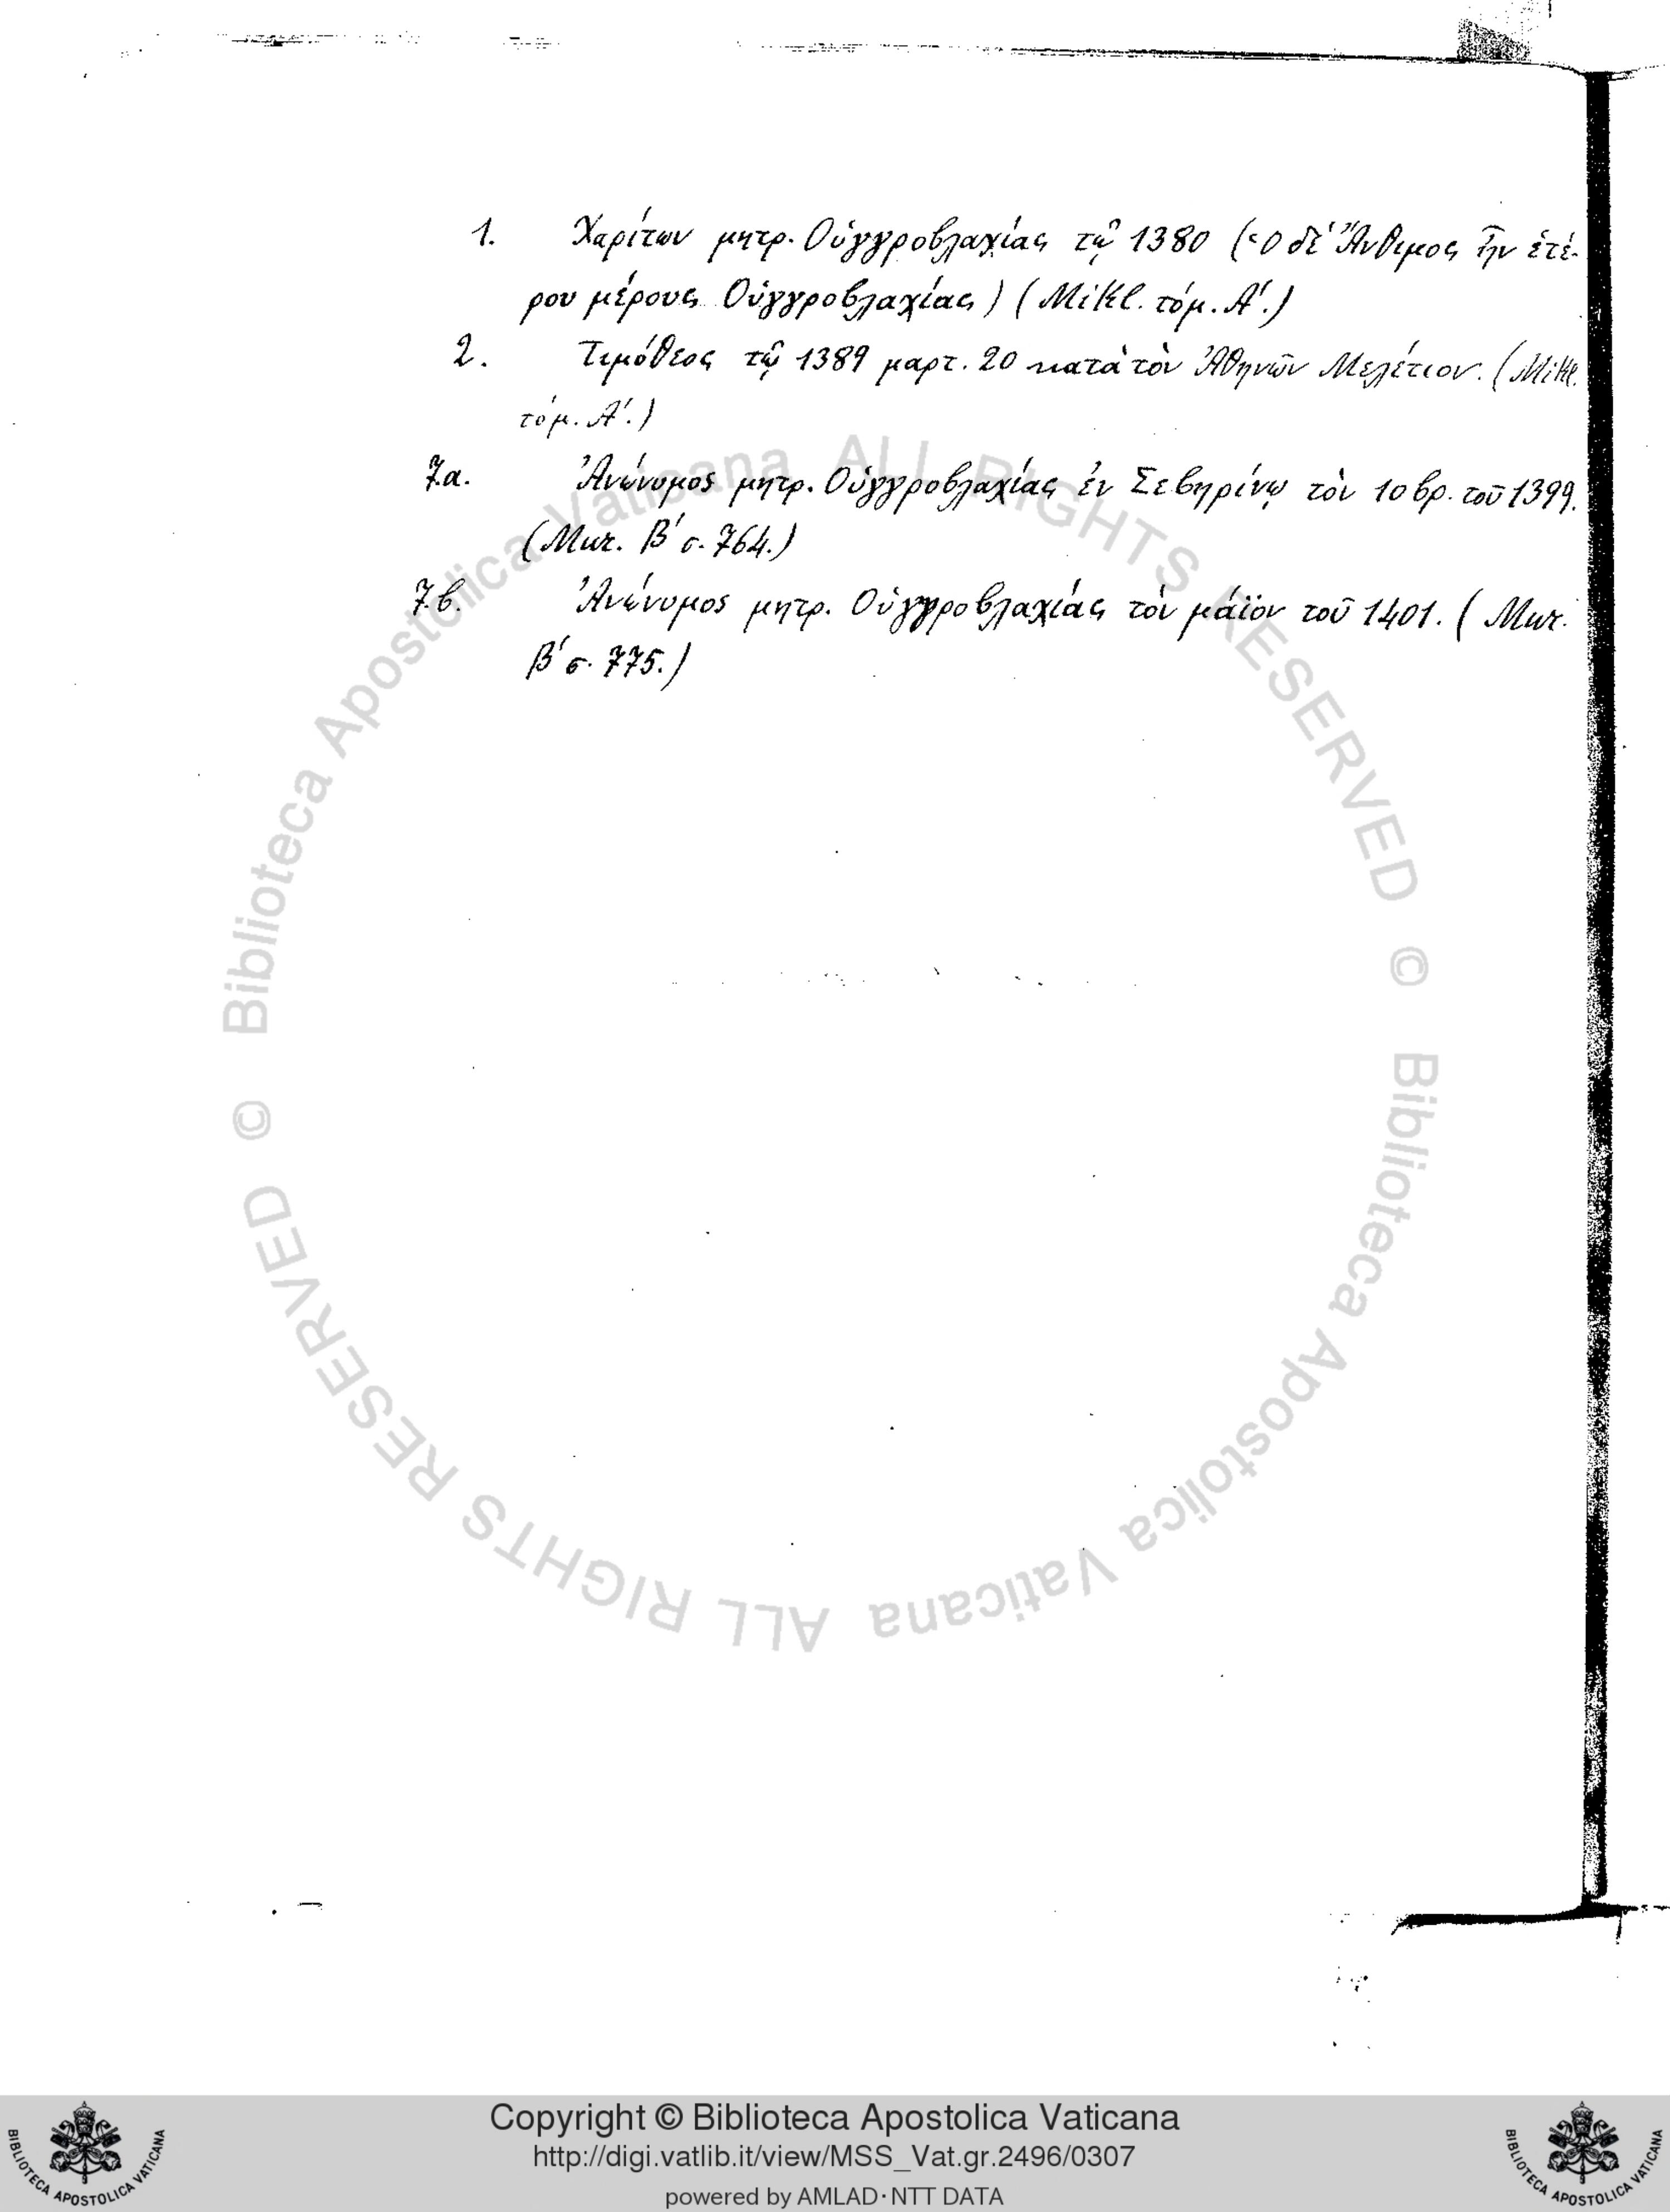 1. Χαρίτων μητρ. Οὐγγροβλαχίας τῷ 1380 (Ὁ δὲ Ἄνθιμος ἦν ἑτέ-
ρου μέρους Οὐγγροβλαχίας) (Mikl. τόμ. Α΄.)
2. Τιμόθεος τῷ 1389 μαρτ. 20 κατὰ τὸν Ἀθηνῶν Μελέτιον. (Mikl.
τόμ. Α΄.)
7.α. Ἀνώνυμος μητρ. Οὐγγροβλαχίας ἐν Σεβηρίνῳ τὸν 10βρ. τοῦ 1399.
(Μικ. Β΄ σ. 764.)
7.β. Ἀνώνυμος μητρ. Οὐγγροβλαχίας τὸν μάϊον τοῦ 1401. (Μικ.
Β΄ σ. 775.)
© Biblioteca Apostolica Vaticana ALL RIGHTS RESERVED
© Biblioteca Apostolica Vaticana ALL RIGHTS RESERVED
Copyright © Biblioteca Apostolica Vaticana
http://digi.vatlib.it/view/MSS_Vat.gr.2496/0307
powered by AMLAD·NTT DATA
BIBLIOTECA APOSTOLICA VATICANA
BIBLIOTECA APOSTOLICA VATICANA